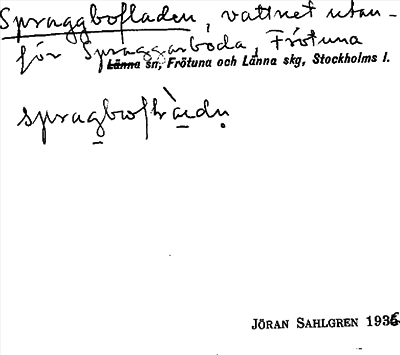 Spraggbofladen, vattnet utan-
för Spraggarboda, Frötuna
Länna sn, Frötuna och Länna skg, Stockholms l.
JÖRAN SAHLGREN 1936